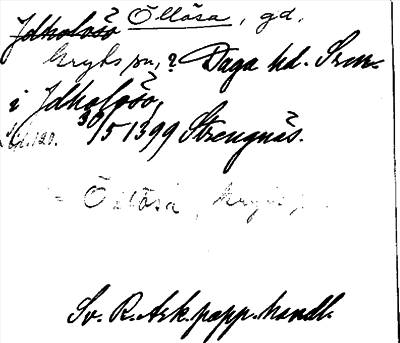 Jdkolaså Öllösa, gd.
Gryts sn, ? Daga hd. Srm.
i Jdkolösö,
30/5 1399 Strengnäs.
= Öllösa, Gryts
Sv. R. Ark. papp. handl.